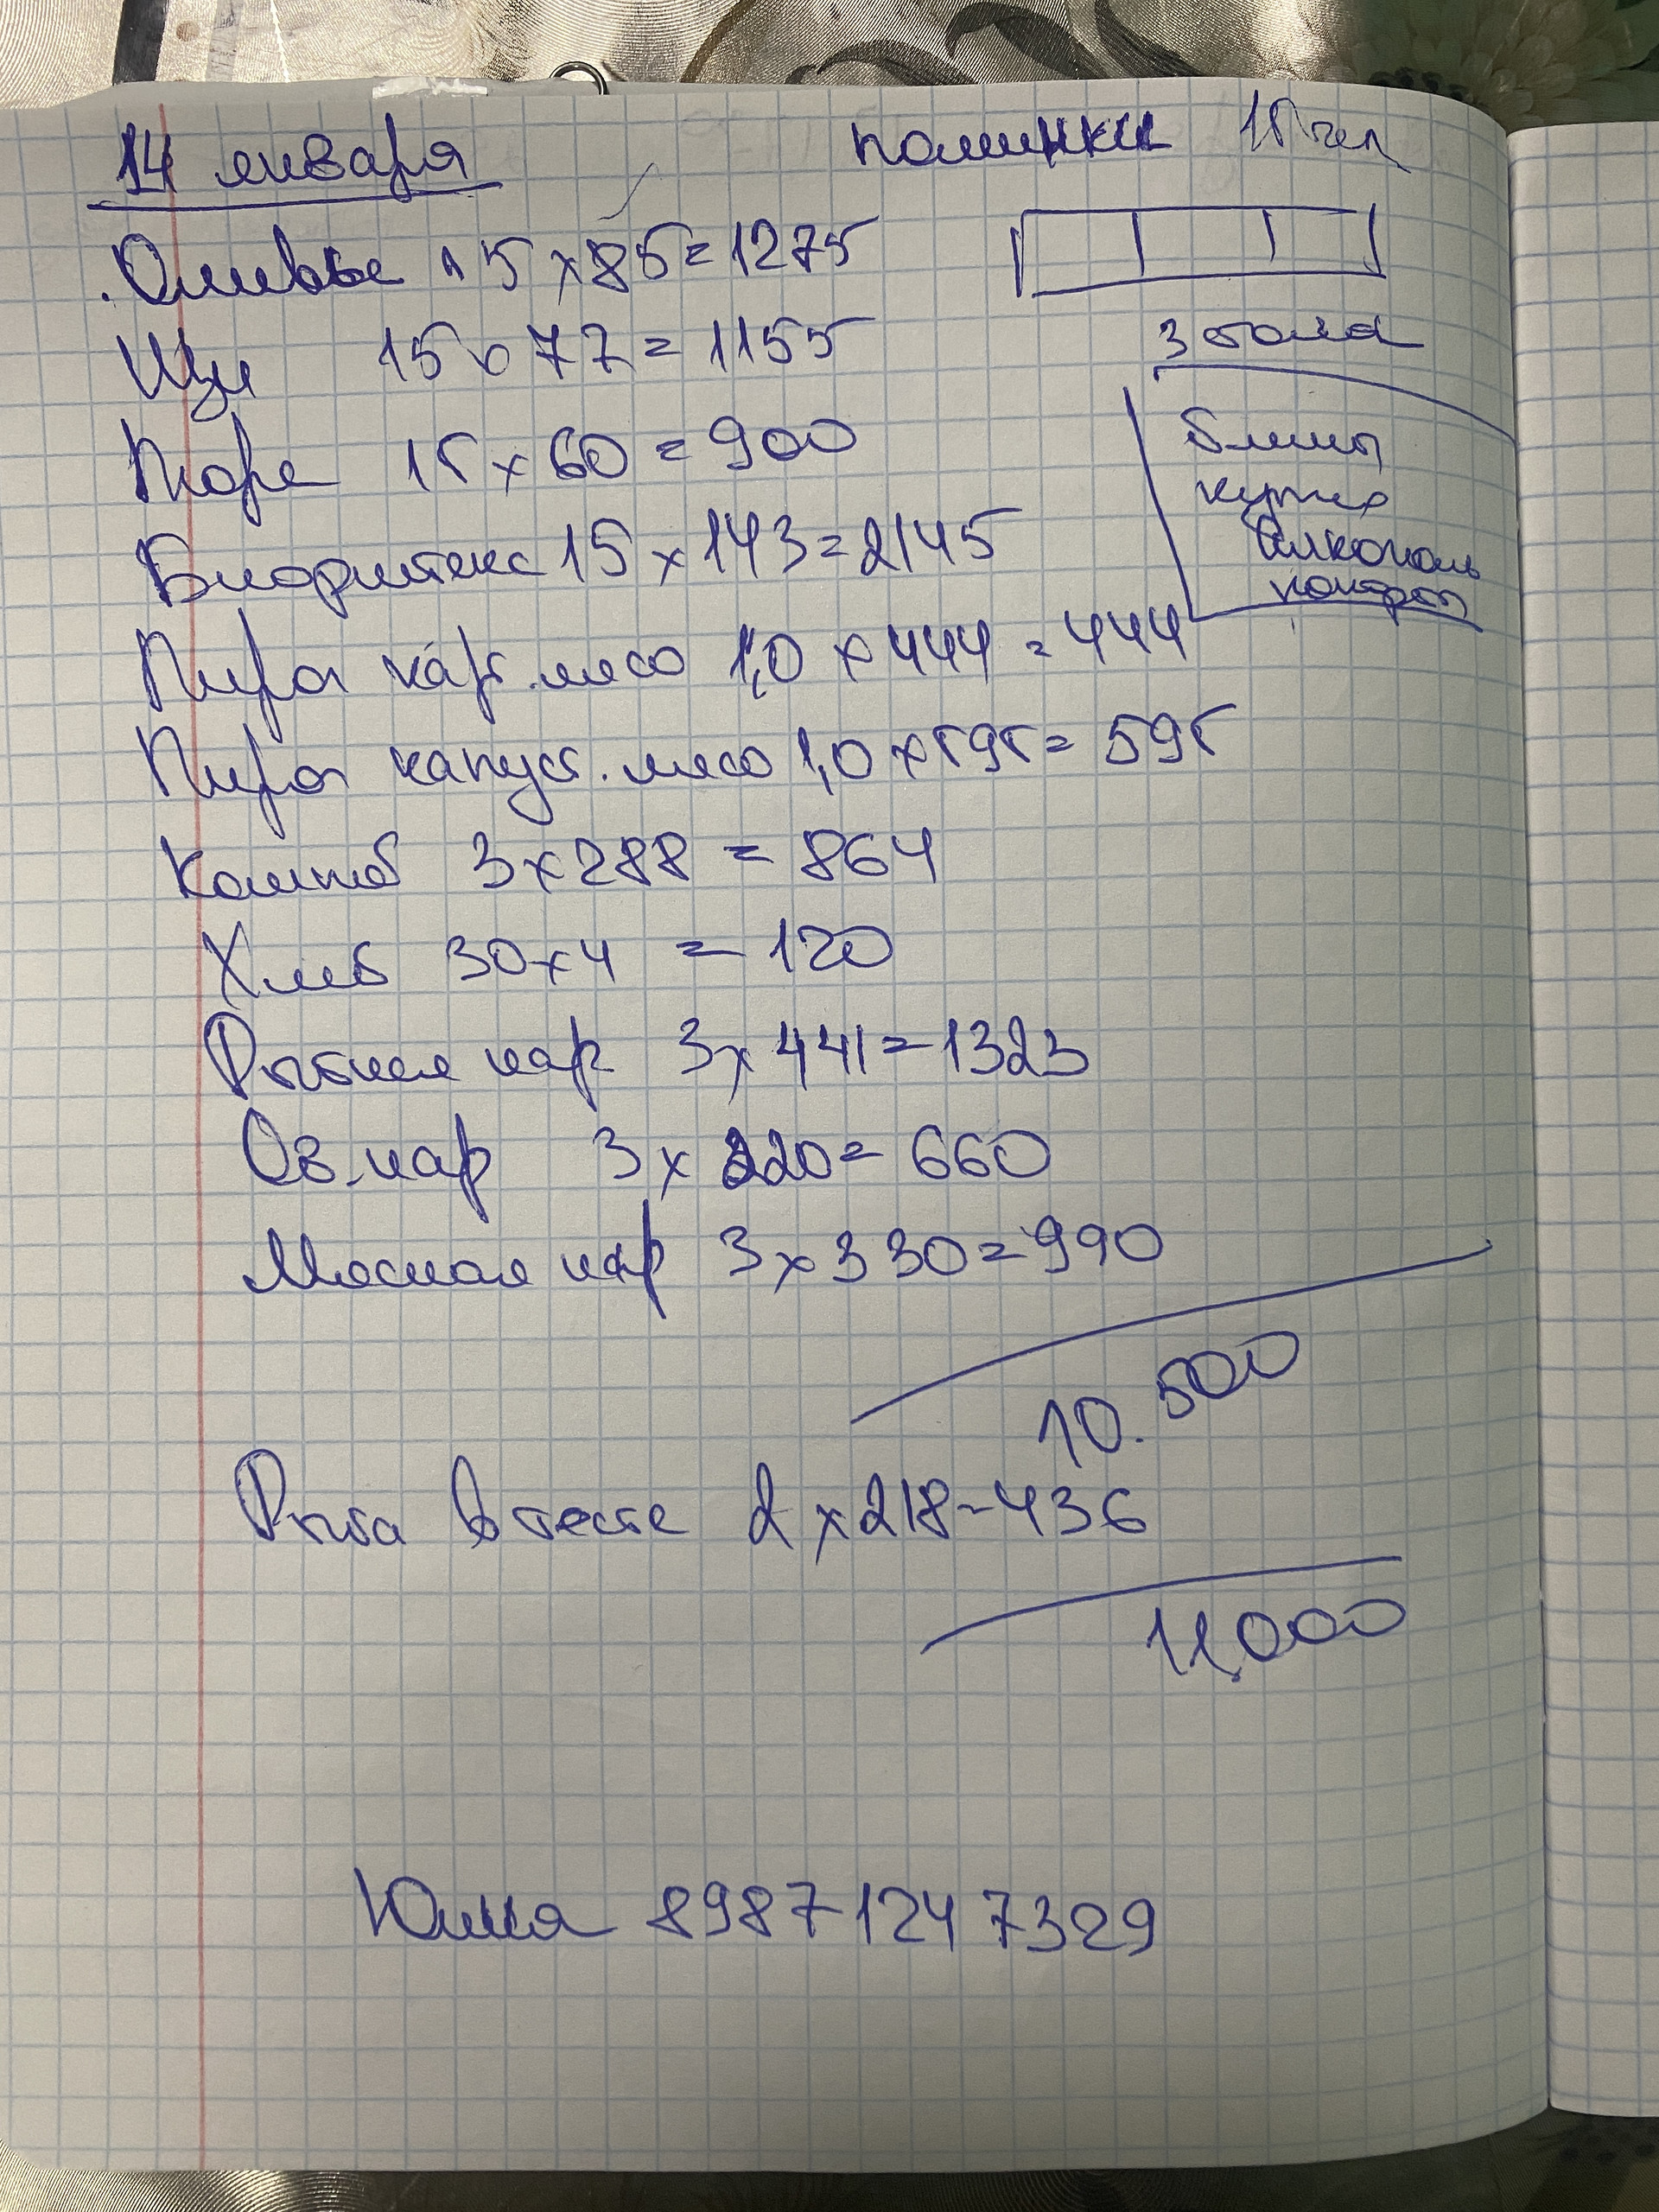 14 января поминки 15 чел
Оливье 15 x 85 = 1275
3 стола
Щи 15 x 77 = 1155
блины
Пюре 15 x 60 = 900
кутья
алкоголь
Бифштекс 15 x 143 = 2145
конфеты
Пирог карт. мясо 1,0 x 444 = 444
Пирог капуст. мясо 1,0 x 595 = 595
Компот 3 x 288 = 864
Хлеб 30 x 4 = 120
Рыбная нар 3 x 441 = 1323
Ов. нар 3 x 220 = 660
Мясная нар 3 x 330 = 990
10.500
Рыба в тесте 2 x 218 - 436
11,000
Юлия 89871247329